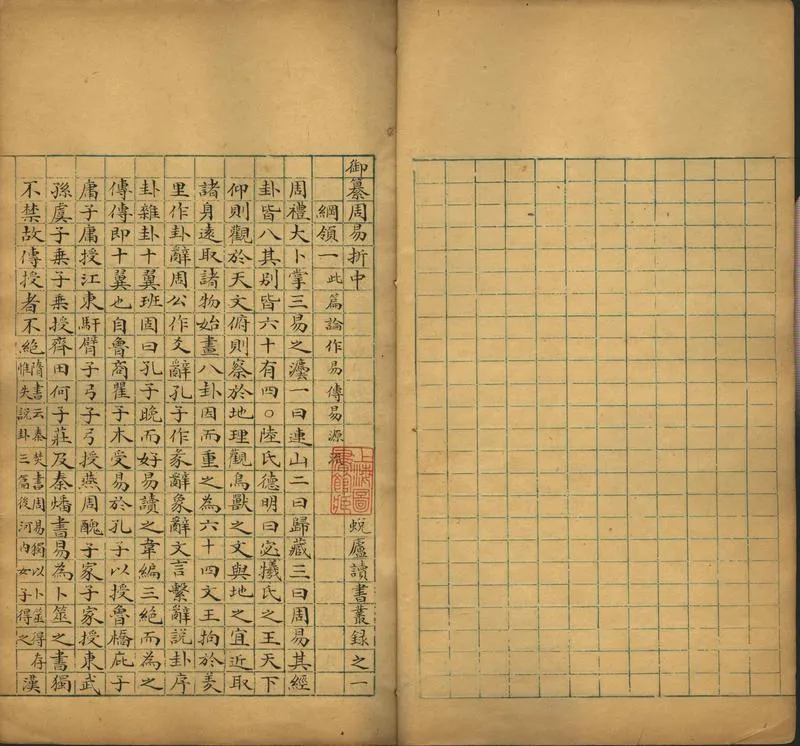 御纂周易折中　蛻廬讀書叢錄之一
綱領一 此篇論作易傳易源流
上海圖書館藏
周禮大卜掌三易之灋一曰連山二曰歸藏三曰周易其經
卦皆八其别皆六十有四○陸氏德明曰宓犧氏之王天下
仰則觀於天文俯則察於地理觀鳥獸之文與地之宜近取
諸身遠取諸物始畫八卦因而重之為六十四文王拘於羑
里作卦辭周公作爻辭孔子作彖辭象辭文言繫辭說卦序
卦雜卦十翼班固曰孔子晚而好易讀之韋編三絕而為之
傳傳即十翼也自魯商瞿子木受易於孔子以授魯橋庇子
庸子庸授江東馯臂子弓子弓授燕周醜子家子家授東武
孫虞子乗子乗授齊田何子莊及秦燔書易為卜筮之書獨
不禁故傳授者不絕隋書云秦焚書周易獨以卜筮得存惟失說卦三篇後河內女子得之漢